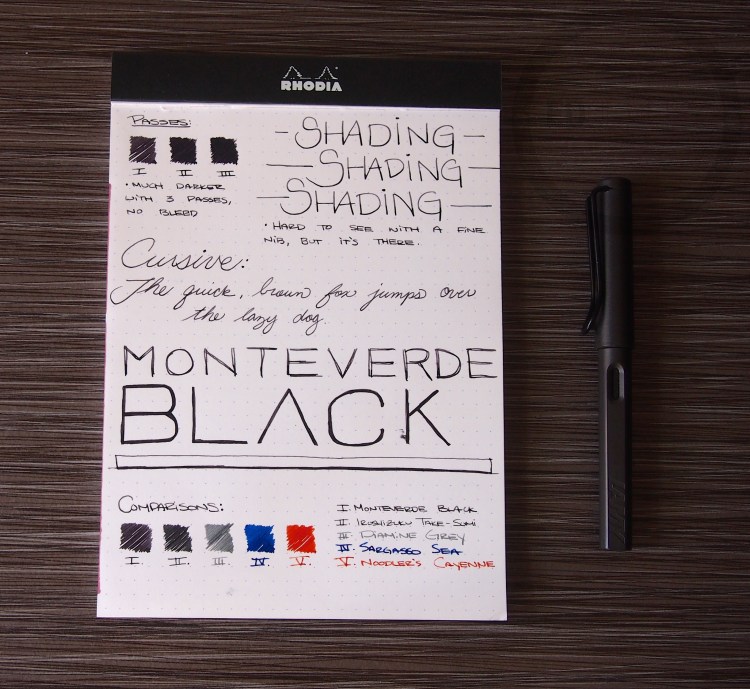 RHODIA
PASSES:
I II III
• MUCH DARKER
WITH 3 PASSES,
NO BLEED
- SHADING -
- SHADING -
- SHADING -
• HARD TO SEE WITH A FINE
NIB, BUT IT'S THERE.
Cursive:
The quick, brown fox jumps over
the lazy dog.
MONTEVERDE
BLACK
COMPARISONS:
I. II. III. IV. V.
I. MONTEVERDE BLACK
II. IROSHIZUKU TAKE-SUMI
III. DIAMINE GREY
IV. SARGASSO SEA
V. NOODLER'S CAYENNE